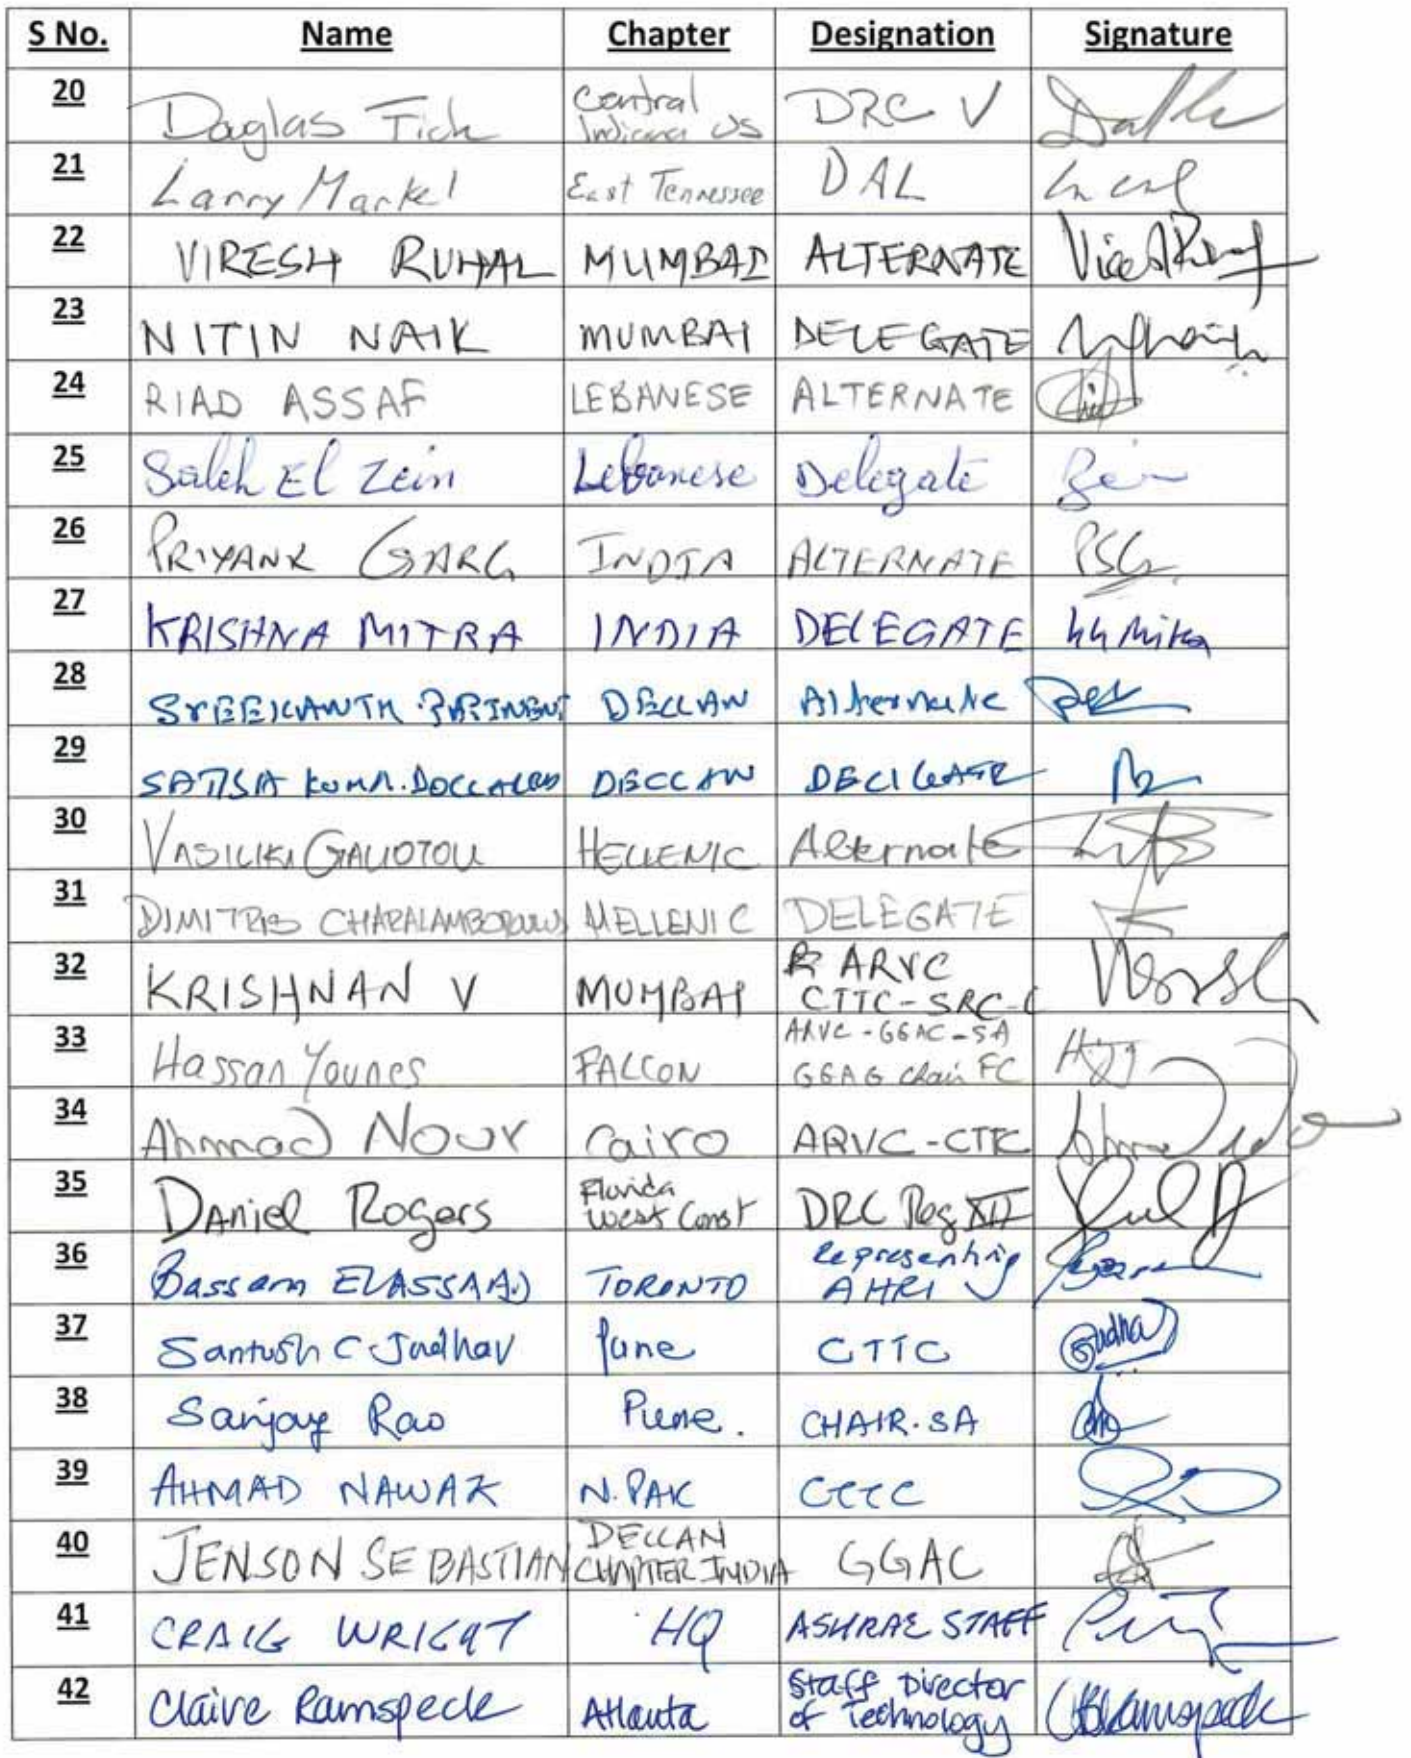 S No. Name Chapter Designation Signature
20 Daglas Tick Central Indiana US DRC V
21 Larry Markel East Tennessee DAL
22 VIRESH RUHAL MUMBAI ALTERNATE
23 NITIN NAIK MUMBAI DELEGATE
24 RIAD ASSAF LEBANESE ALTERNATE
25 Saleh El Zein Lebanese Delegate
26 PRIYANK GARG INDIA ALTERNATE PSG
27 KRISHNA MITRA INDIA DELEGATE
28 SREEKANTH DECCAN Alternate
29 DECCAN
30 VASILIKI GALIOTOU HELLENIC Alternate
31 DIMITRIS HELLENIC DELEGATE
32 KRISHNAN V MUMBAI ARVC
CTTC-SRC-C
33 Hassan Younes FALCON ARVC-GGAC-SA
GGAG chair FC
34 Ahmad Nour Cairo ARVC-CTTC
35 Daniel Rogers Florida West Coast DRC Reg XII
36 Bassam ELASSAAD TORONTO Representing
AHRI
37 Santosh C Jadhav Pune CTTC
38 Sanjay Rao Pune. CHAIR.SA
39 AHMAD NAWAZ N.PAK CTTC
40 JENSON SEBASTIAN DECCAN
CHAPTER INDIA GGAC
41 CRAIG WRIGHT HQ ASHRAE STAFF
42 Claire Ramspeck Atlanta Staff Director
of Technology CBRamspeck